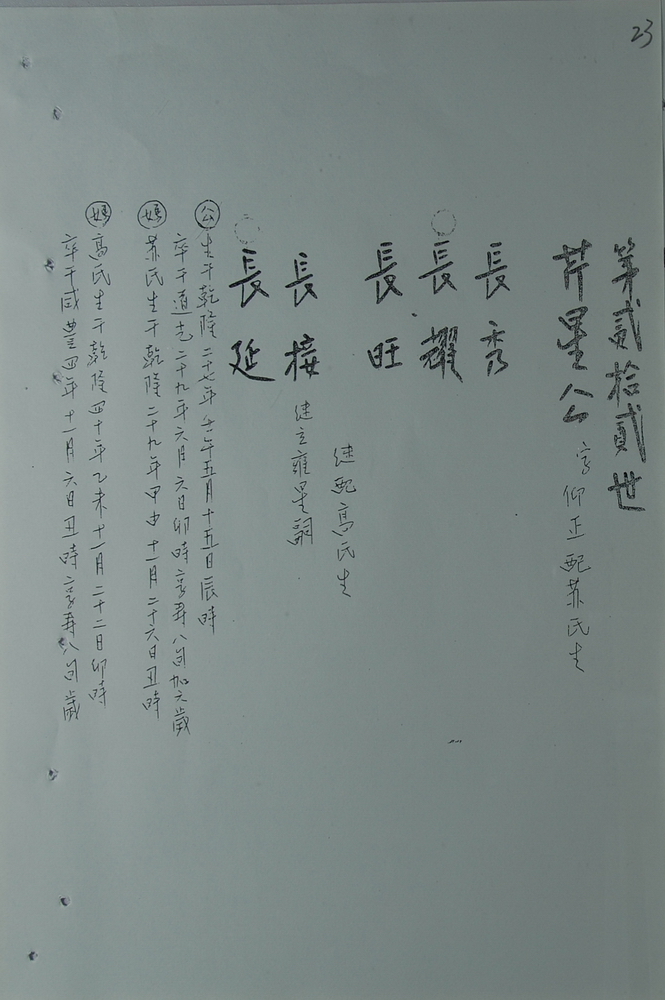 23
第貳拾貳世
芹星公 字仰正配苏氏生
長秀
長耀
長旺
継配高氏生
長接 继立雍星嗣
長延
公 生于乾隆二十七年壬午五月十五日辰時
卒于道光二十九年六月六日卯時享寿八旬加六歲
妈 苏氏生于乾隆二十九年甲申十一月二十六日丑時
妈 高氏生于乾隆四十年乙未十一月二十二日卯時
卒于咸豊四年十一月六日丑時享寿八旬歲